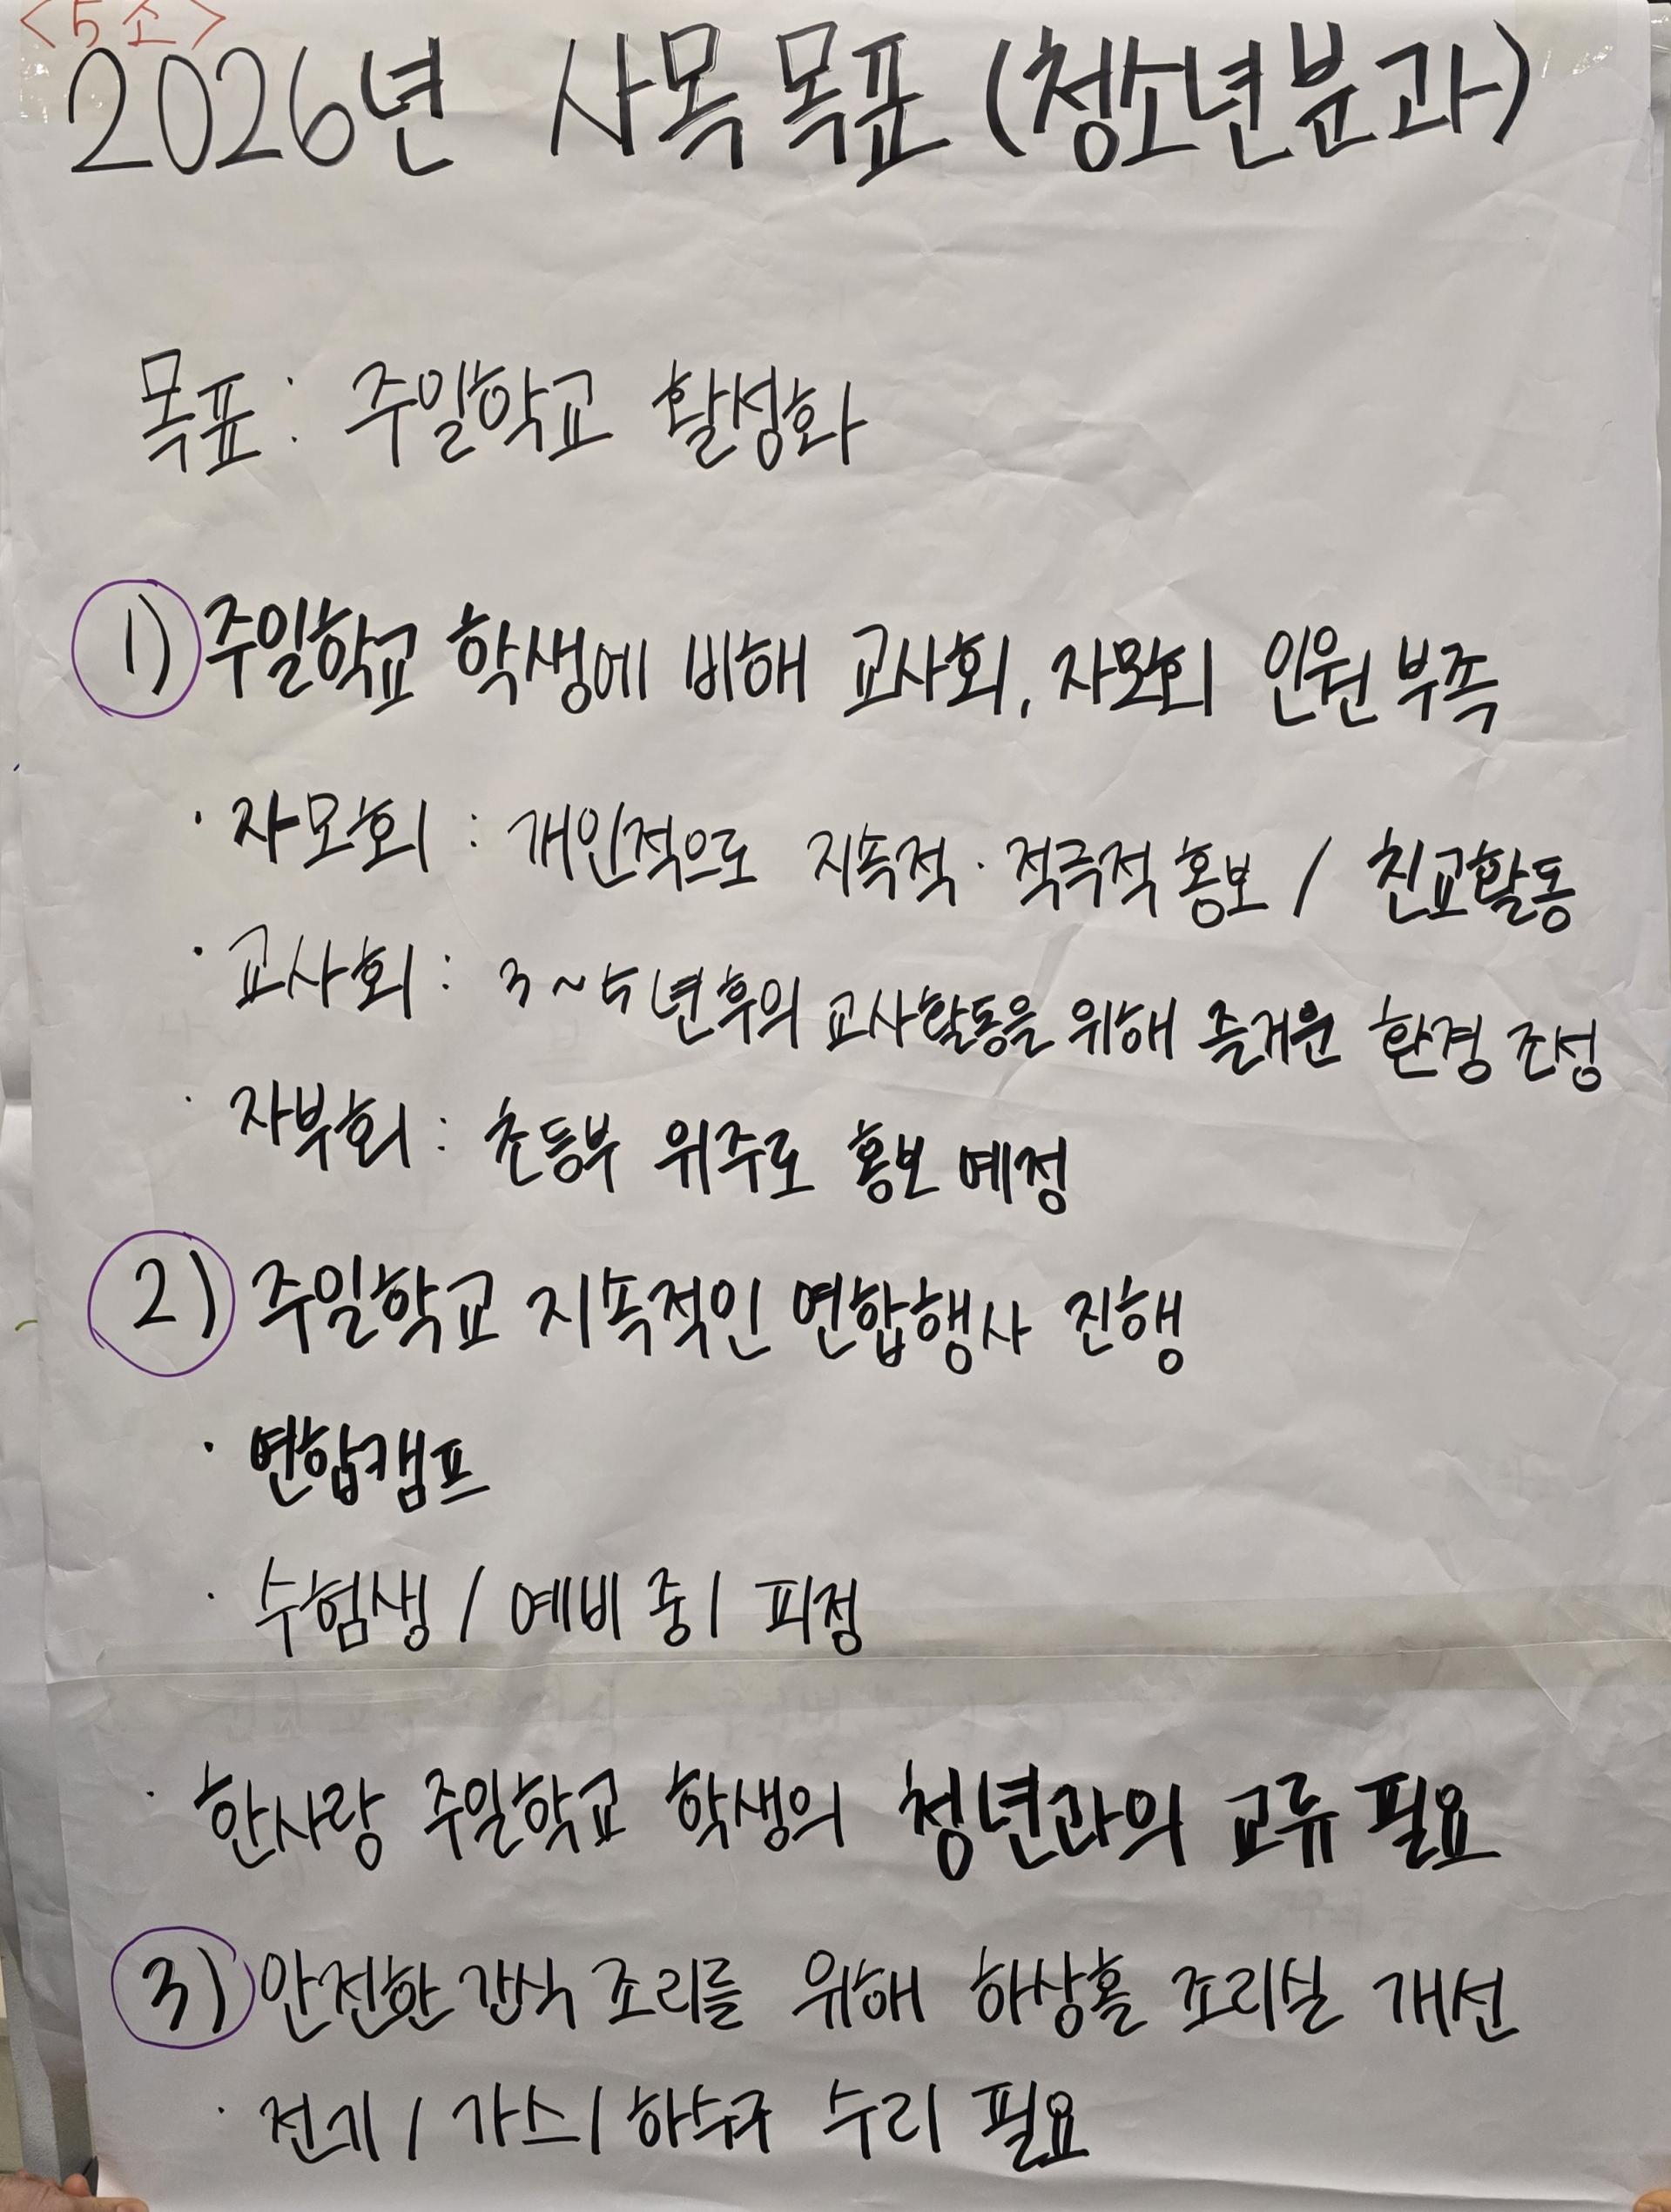 <5조>
2026년 사목 목표 (청소년분과)
목표 : 주일학교 활성화
1) 주일학교 학생에 비해 교사회, 자모회 인원 부족
· 자모회 : 개인적으로 지속적 · 적극적 홍보 / 친교활동
· 교사회 : 3~5년후의 교사활동을 위해 즐거운 환경 조성
· 자부회 : 초등부 위주로 홍보 예정
2) 주일학교 지속적인 연합행사 진행
· 연합캠프
· 수험생 / 예비 중1 피정
· 한사랑 주일학교 학생의 청년과의 교류 필요
3) 안전한 간식 조리를 위해 하상홀 조리실 개선
· 전기 / 가스 / 하수구 수리 필요